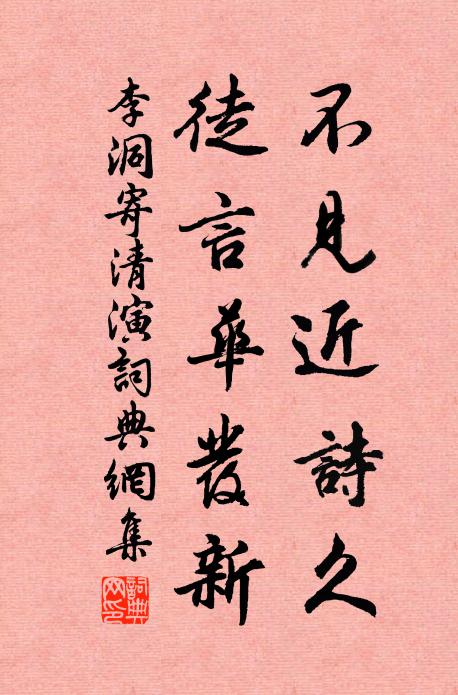 不見近詩久
徒言華發新
李洞寄清演詞典網集
詞典網印